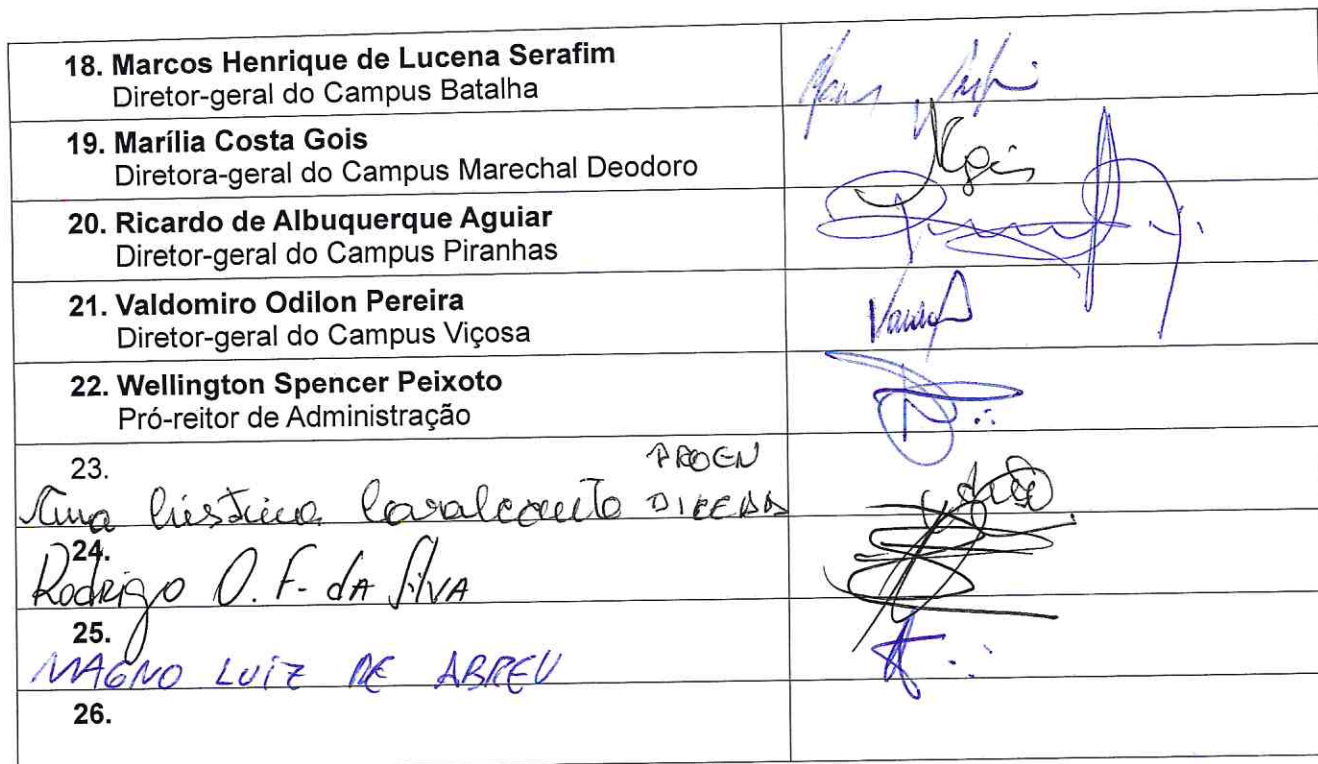 18. Marcos Henrique de Lucena Serafim
Diretor-geral do Campus Batalha
19. Marília Costa Gois
Diretora-geral do Campus Marechal Deodoro
MGois
20. Ricardo de Albuquerque Aguiar
Diretor-geral do Campus Piranhas
21. Valdomiro Odilon Pereira
Diretor-geral do Campus Viçosa
22. Wellington Spencer Peixoto
Pró-reitor de Administração
23.
PROEN
Ana Cristina Cavalcante
24.
Rodrigo O. F. dA SilVA
25.
MAGNO LUiZ DE ABREU
26.